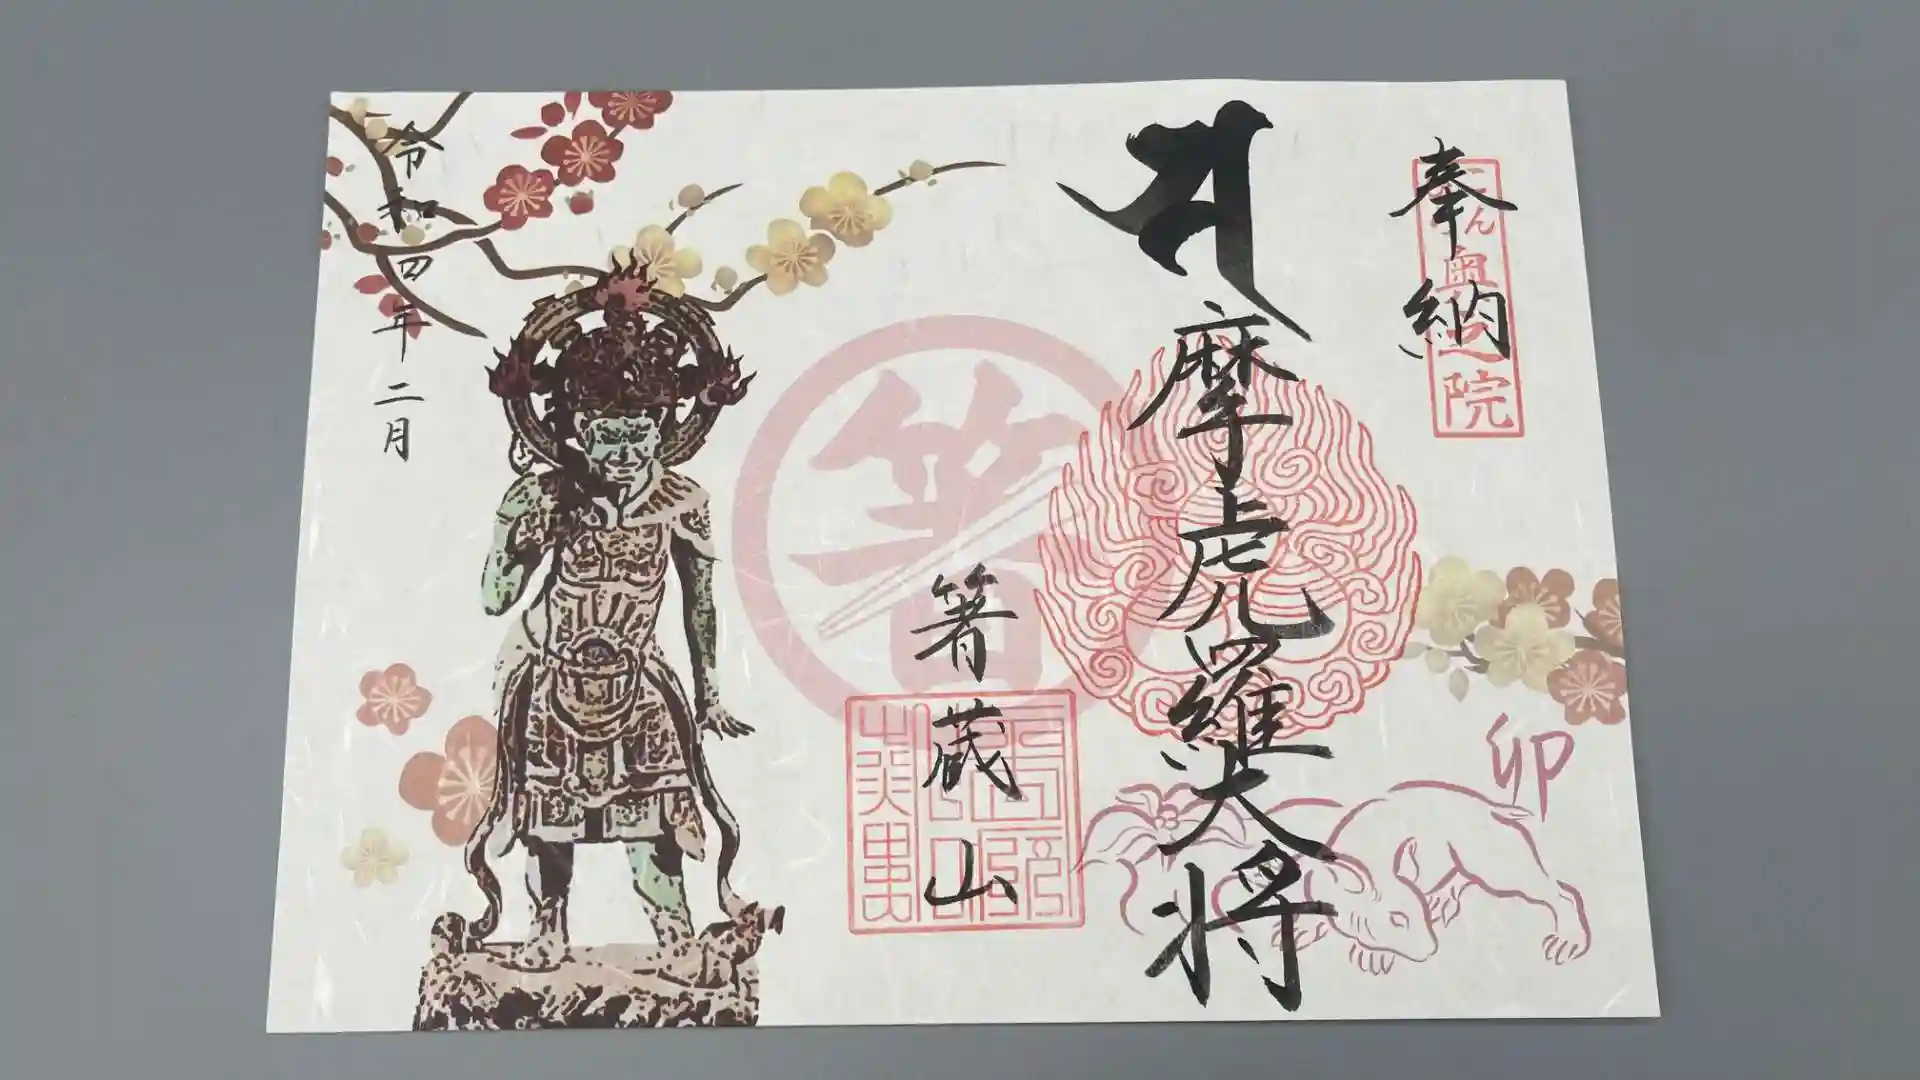 奉納
奥之院
摩虎羅大将
卯
箸
箸蔵山
令和四年二月